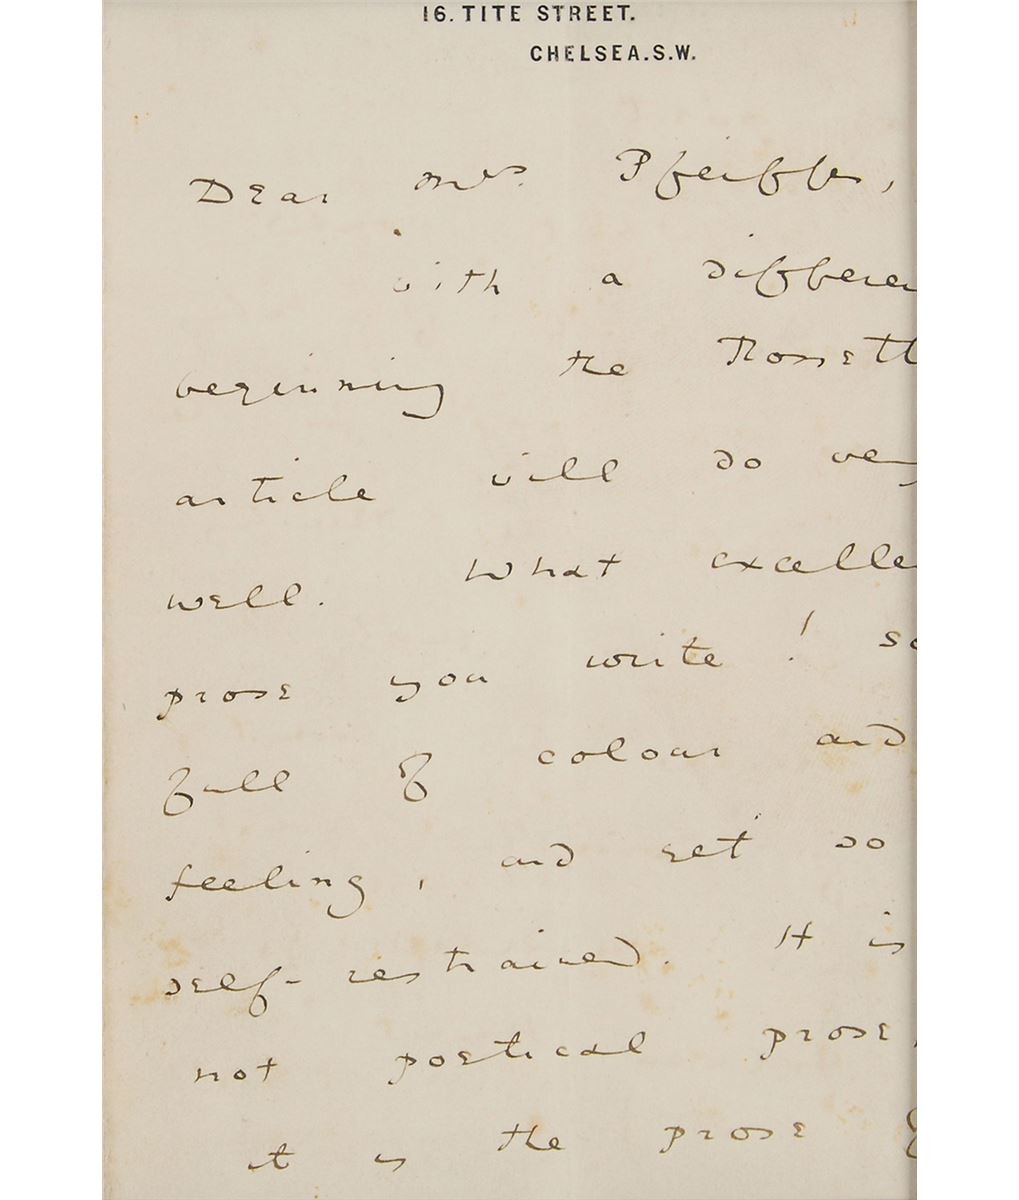 16. TITE STREET.
CHELSEA. S.W.
Dear Mrs. Pfeiffer,
with a differen
beginning the Rossett
article will do very
well. What excelle
prose you write! so
full of colour and
feeling, and yet so
self-restrained. It is
not poetical prose,
it is the prose of